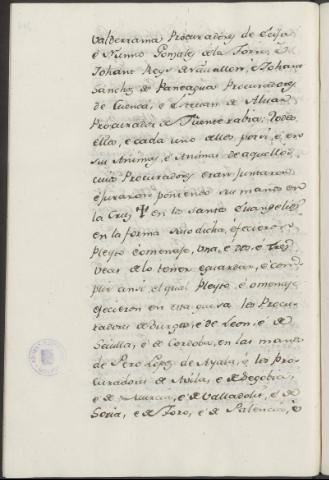 Valderrama Procuradores de Ecija
é Nunno Gonzales de la Torre, é
Johanc Royz de Vaillon, é Johanc
Sanchez de Paneagua Procuradores
de Cuenca, é Estevan de Alvar
Procurador de Fuenterabia; todos
ellos, e cada uno dellos por si, é, en
sus Animas, é Animas de aquellos
cuios Procuradores eran, juntaron
é juraron poniendo sus manos en
la Cruz ✝ en los santos Evangelios
en la forma suso dicha, é fecieron
Pleyto é omenaje, una, é dos, é tres
veces de lo tener é guardar, é com-
plir ansi, el qual Pleyto, é omenaje
efecieron en esta guisa los Procu-
radores de Burgos, é de Leon, é de
Sevilla, é de Cordova, en las manos
de Pero Lopez de Ayala, é los pro-
curadores de Avila, é de Segobia,
é de Murcia, é de Valladolid, é de
Soria, é de Toro, é de Palencia, é